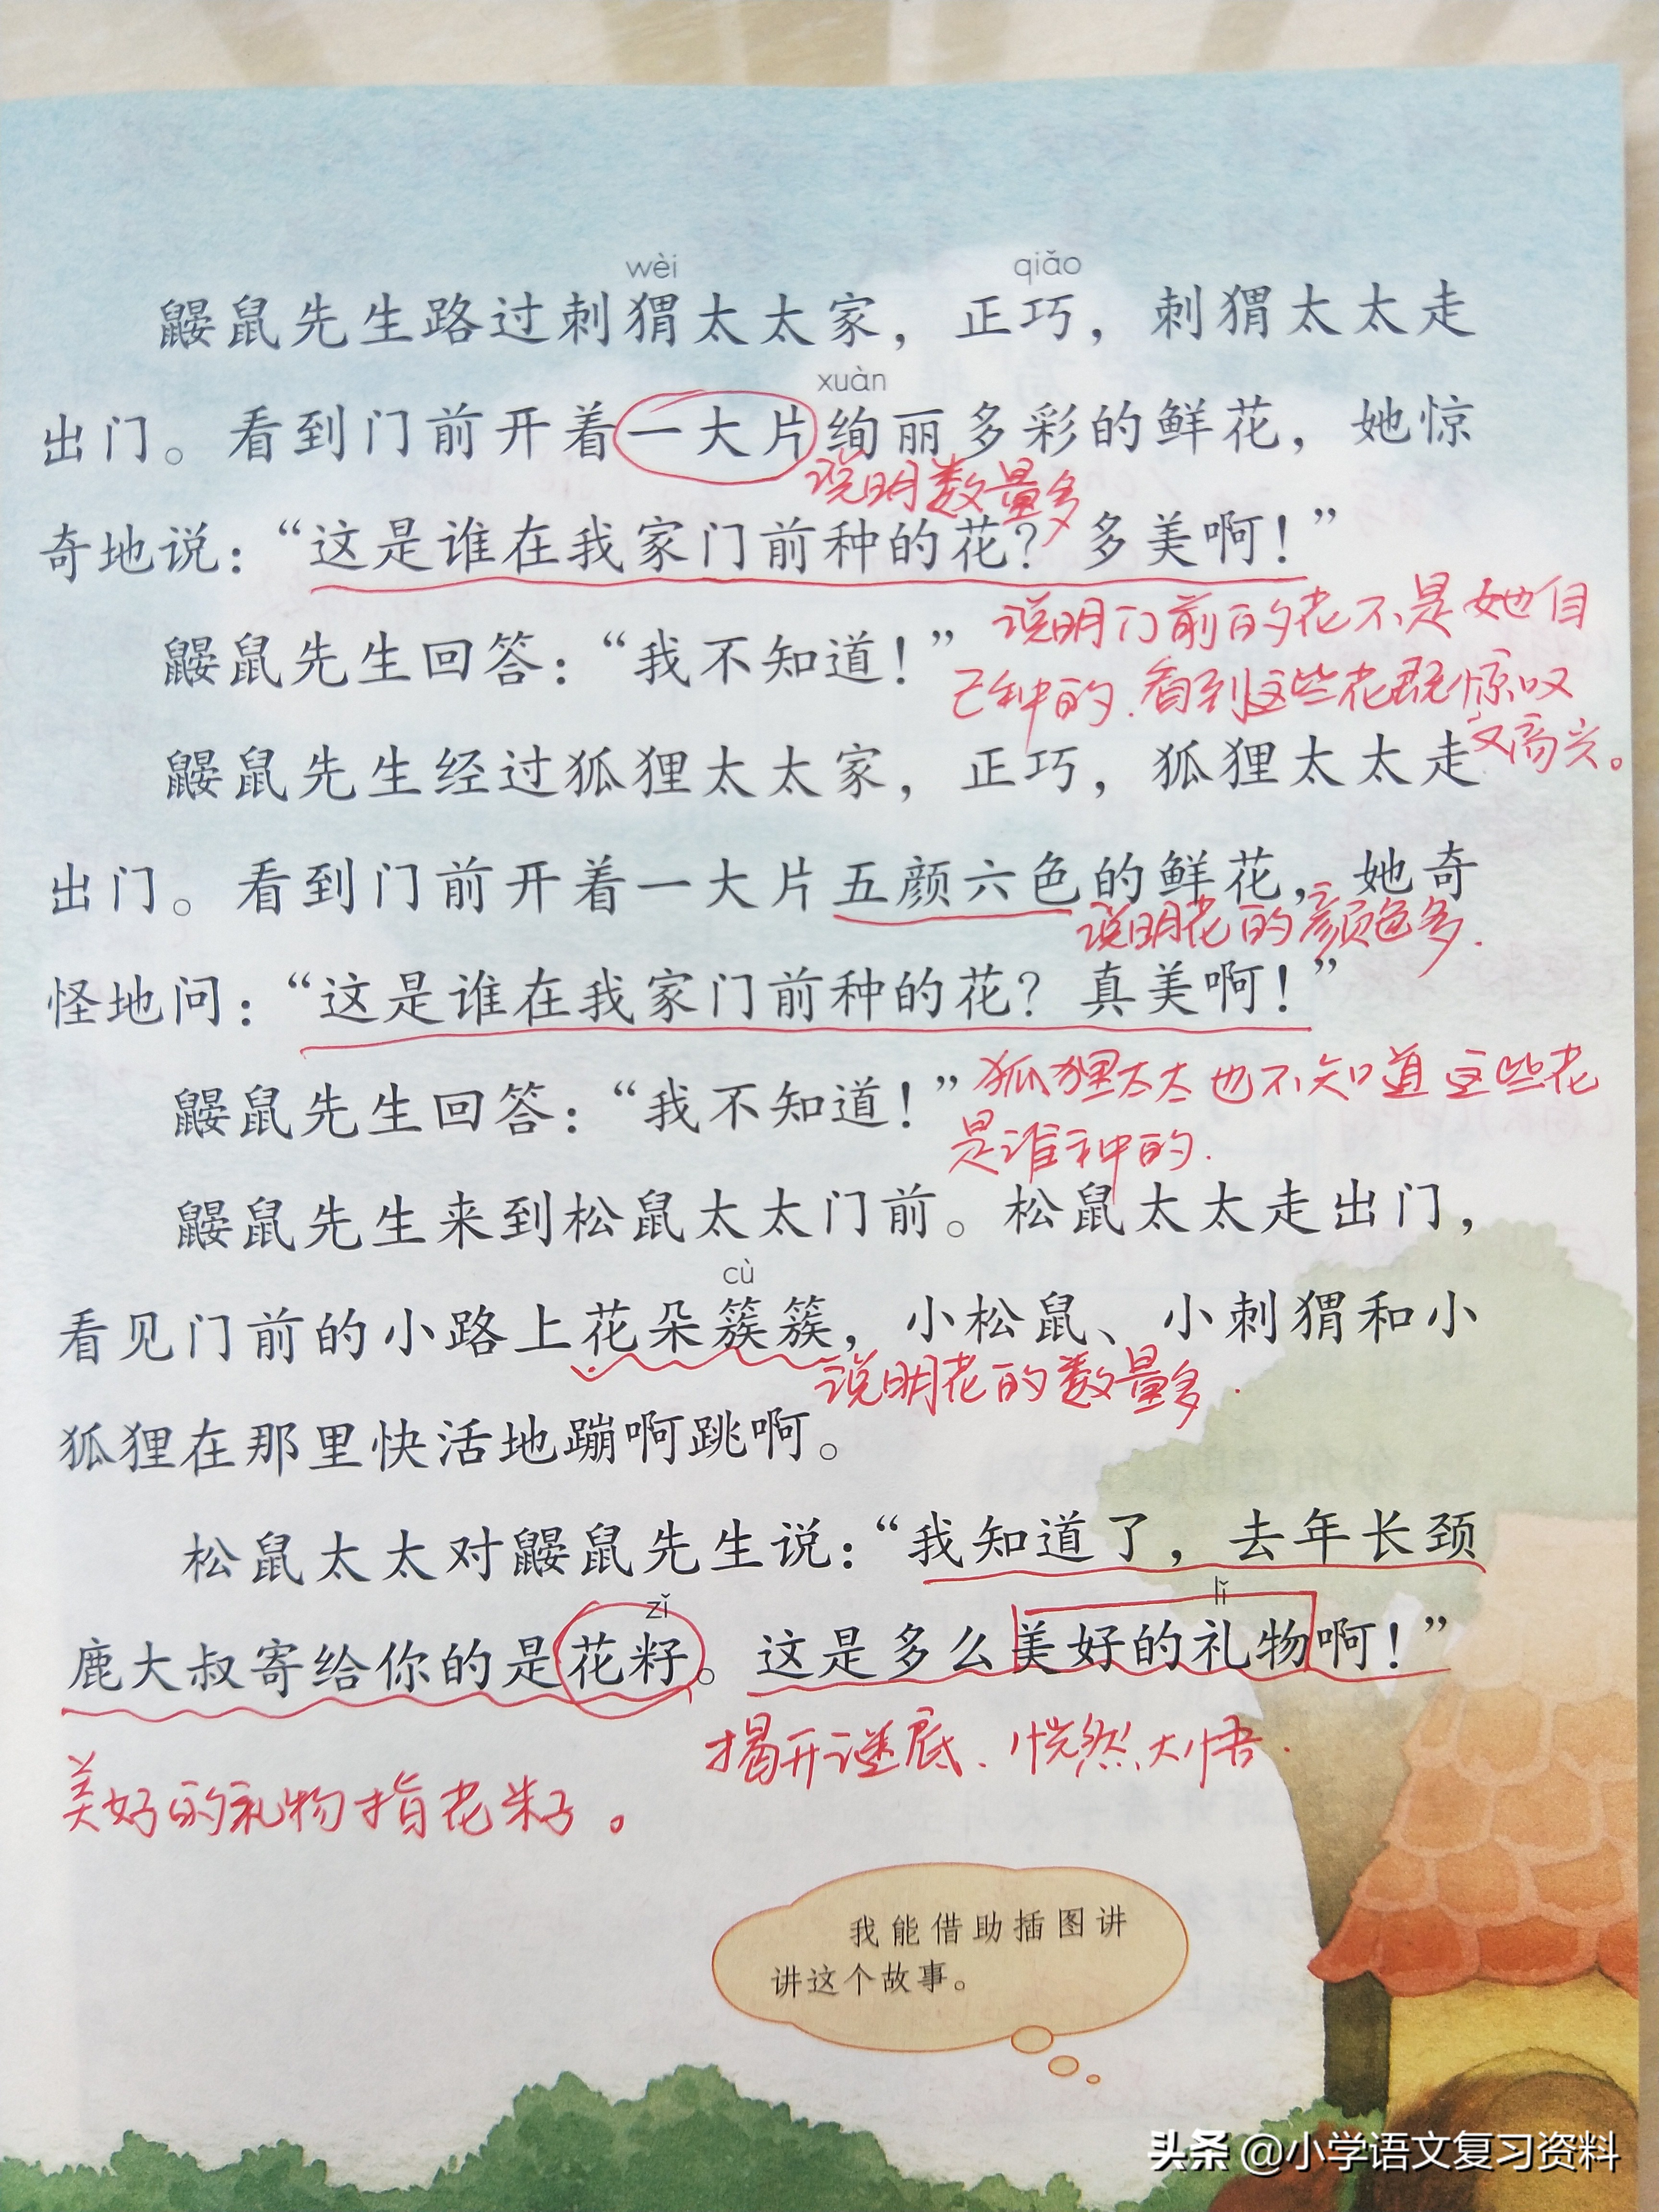 wèi qiǎo
鼹鼠先生路过刺猬太太家，正巧，刺猬太太走
xuàn
出门。看到门前开着一大片绚丽多彩的鲜花，她惊
说明数量多
奇地说：“这是谁在我家门前种的花？多美啊！”
说明门前的花不是她自
鼹鼠先生回答：“我不知道！”
己种的.看到这些花既惊叹
又高兴。
鼹鼠先生经过狐狸太太家，正巧，狐狸太太走
出门。看到门前开着一大片五颜六色的鲜花，她奇
说明花的颜色多.
怪地问：“这是谁在我家门前种的花？真美啊！”
狐狸太太也不知道这些花
鼹鼠先生回答：“我不知道！”
是谁种的.
鼹鼠先生来到松鼠太太门前。松鼠太太走出门，
cù
看见门前的小路上花朵簇簇，小松鼠、小刺猬和小
说明花的数量多.
狐狸在那里快活地蹦啊跳啊。
松鼠太太对鼹鼠先生说：“我知道了，去年长颈
zǐ lǐ
鹿大叔寄给你的是花籽。这是多么美好的礼物啊！”
揭开谜底、恍然大悟.
美好的礼物指花籽。
我能借助插图讲
讲这个故事。
头条 @小学语文复习资料